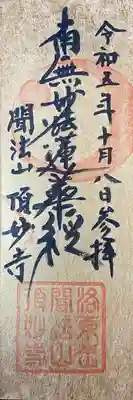 令和五年十月八日参拝
南無妙法蓮華経
聞法山頂妙寺
洛京庄
聞法山
頂妙寺